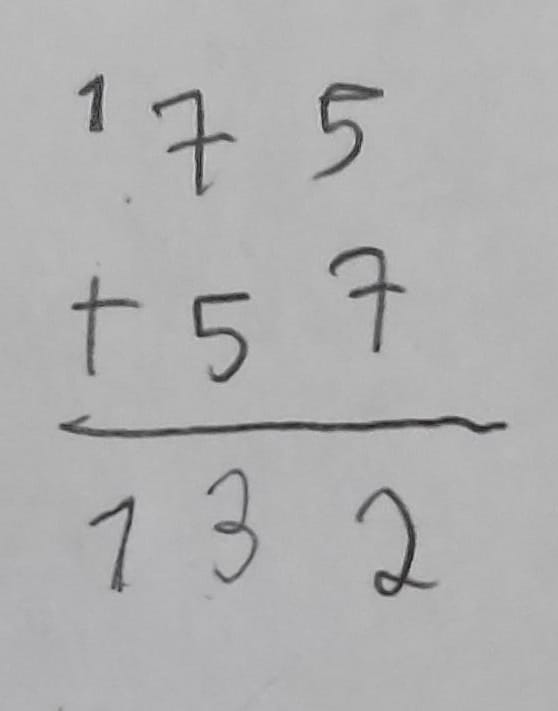 ¹75
+57
132